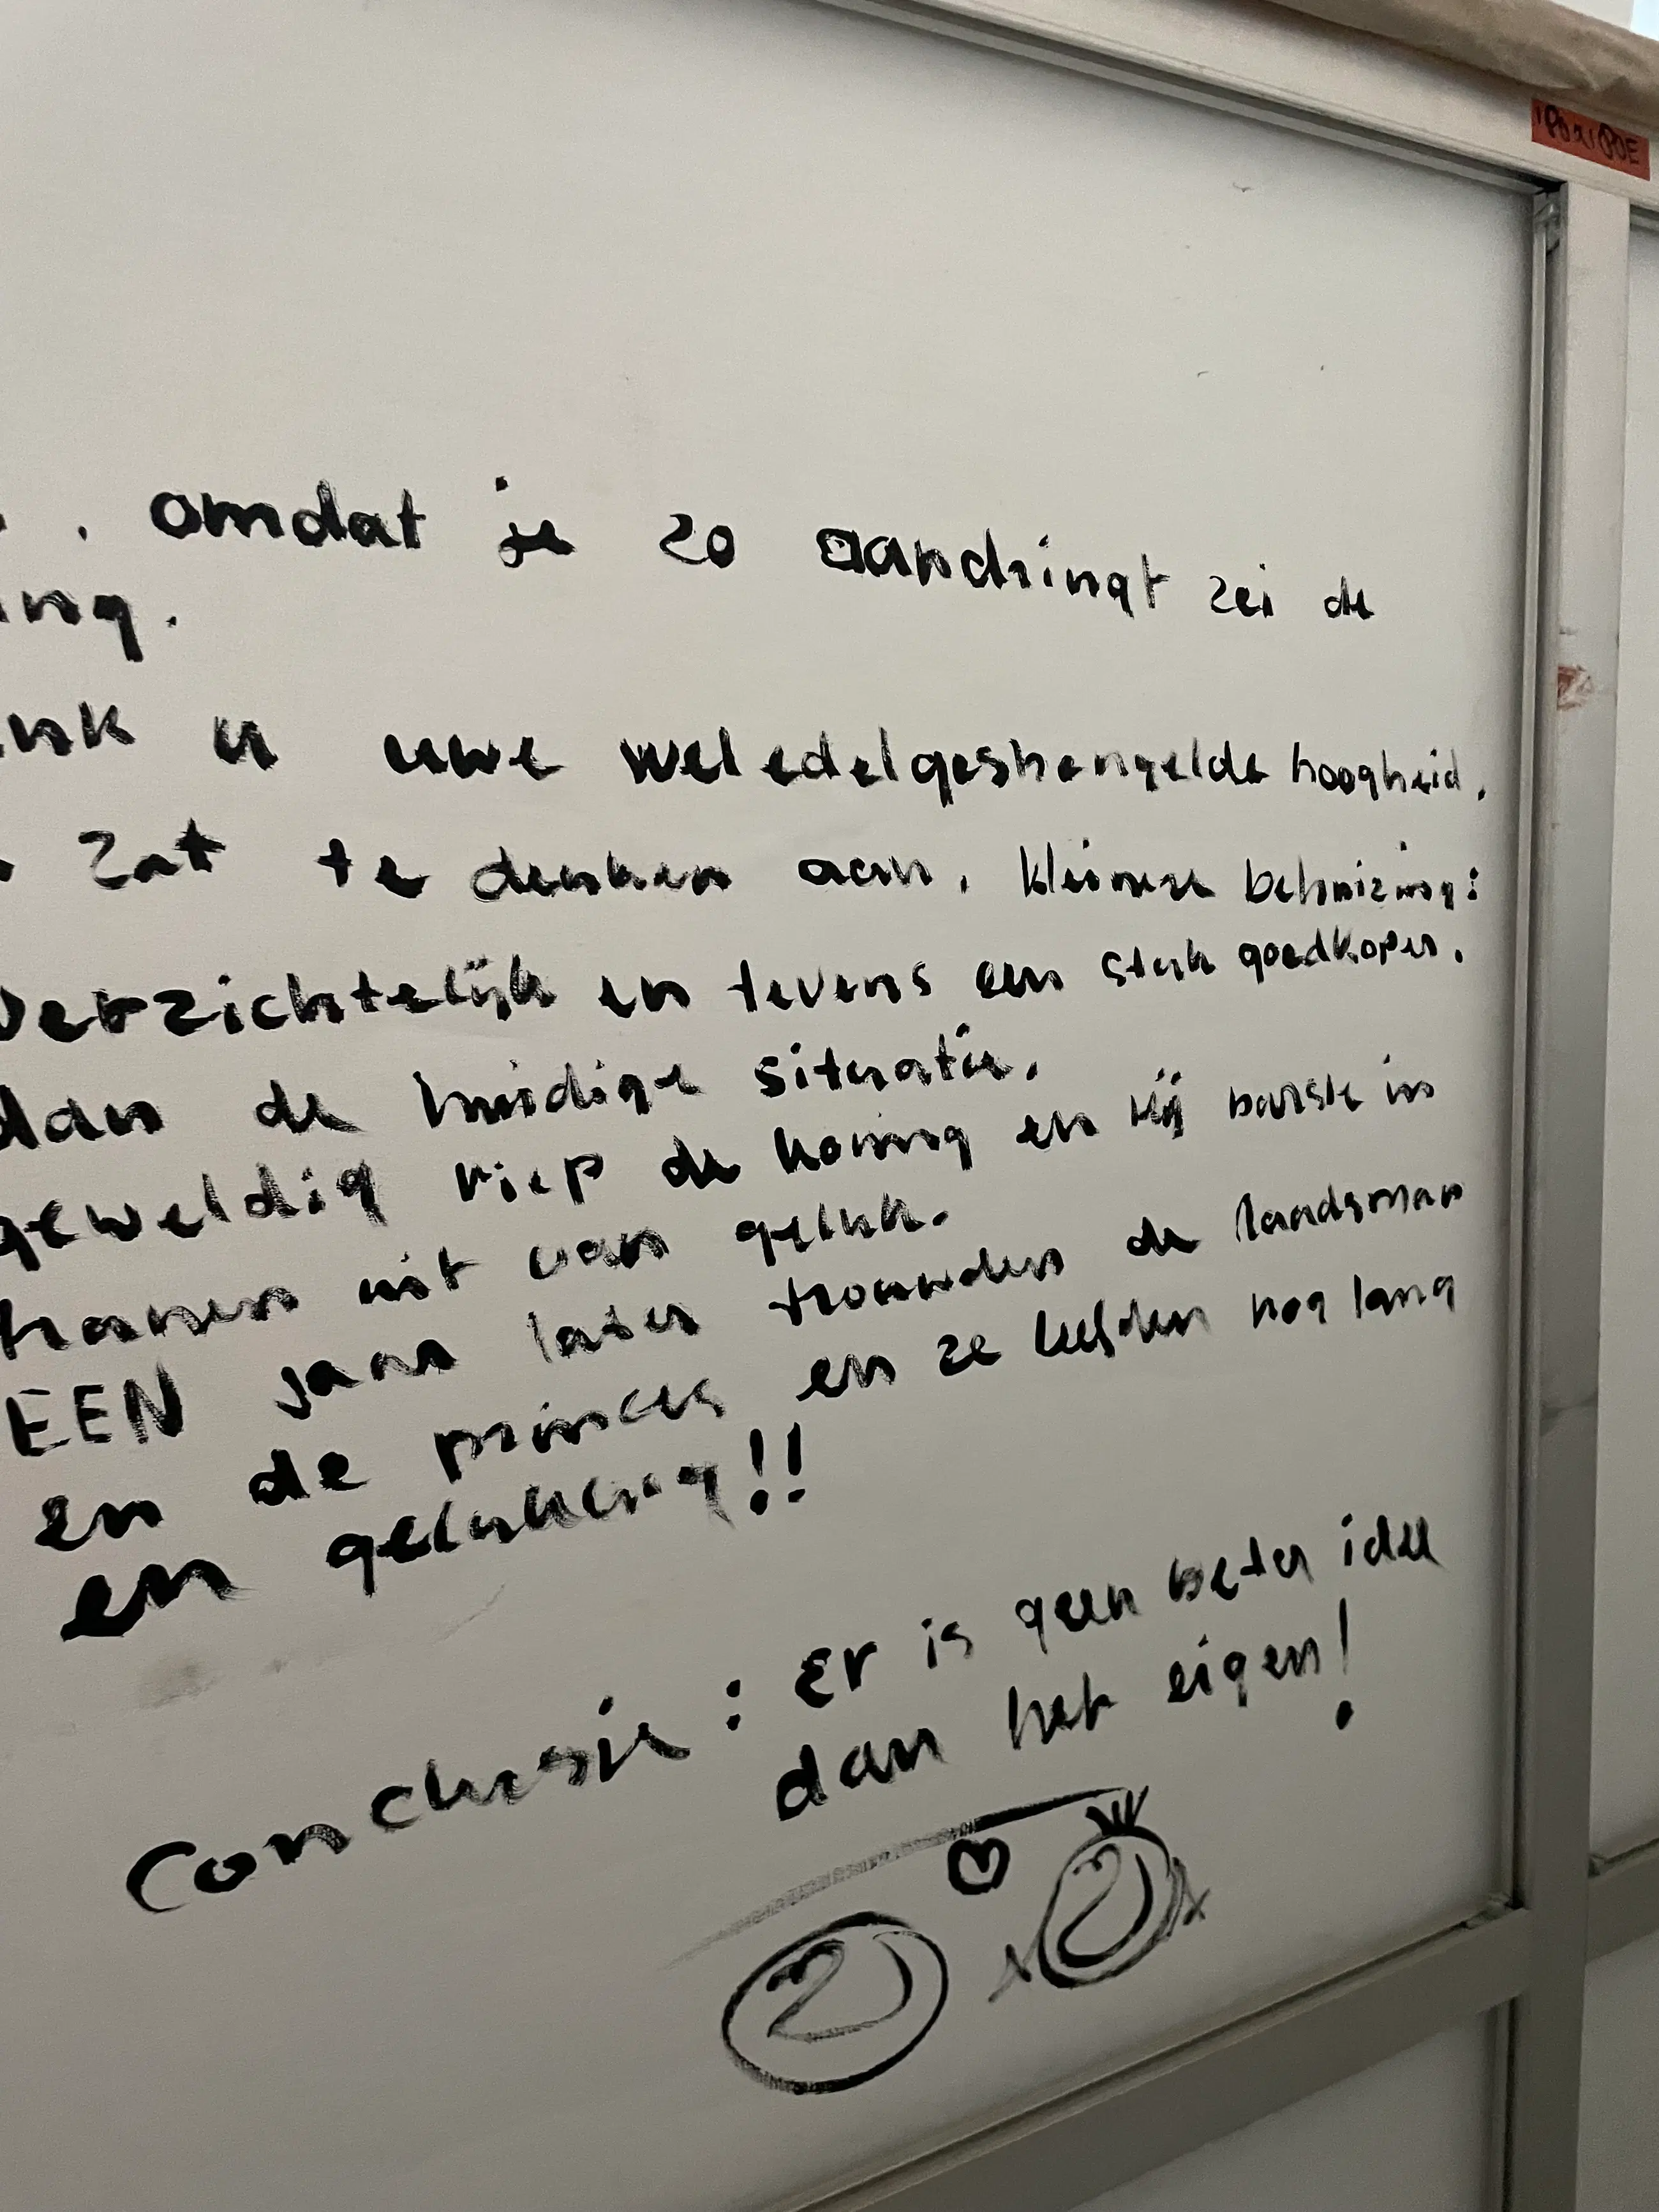 . omdat je zo aandringt zei de
ing.
ink u uwe weledelgestrengelde hoogheid.
zat te denken aan. kleinere behuizing:
verzichtelijk en tevens een stuk goedkoper.
dan de huidige situatie.
geweldig riep de koning en hij barste in
tranen uit van geluk.
EEN jaar later trouwden de landsman
en de princes en ze leefden nog lang
en gelukkig!!
Conclusie: Er is geen beter idee
dan het eigen!